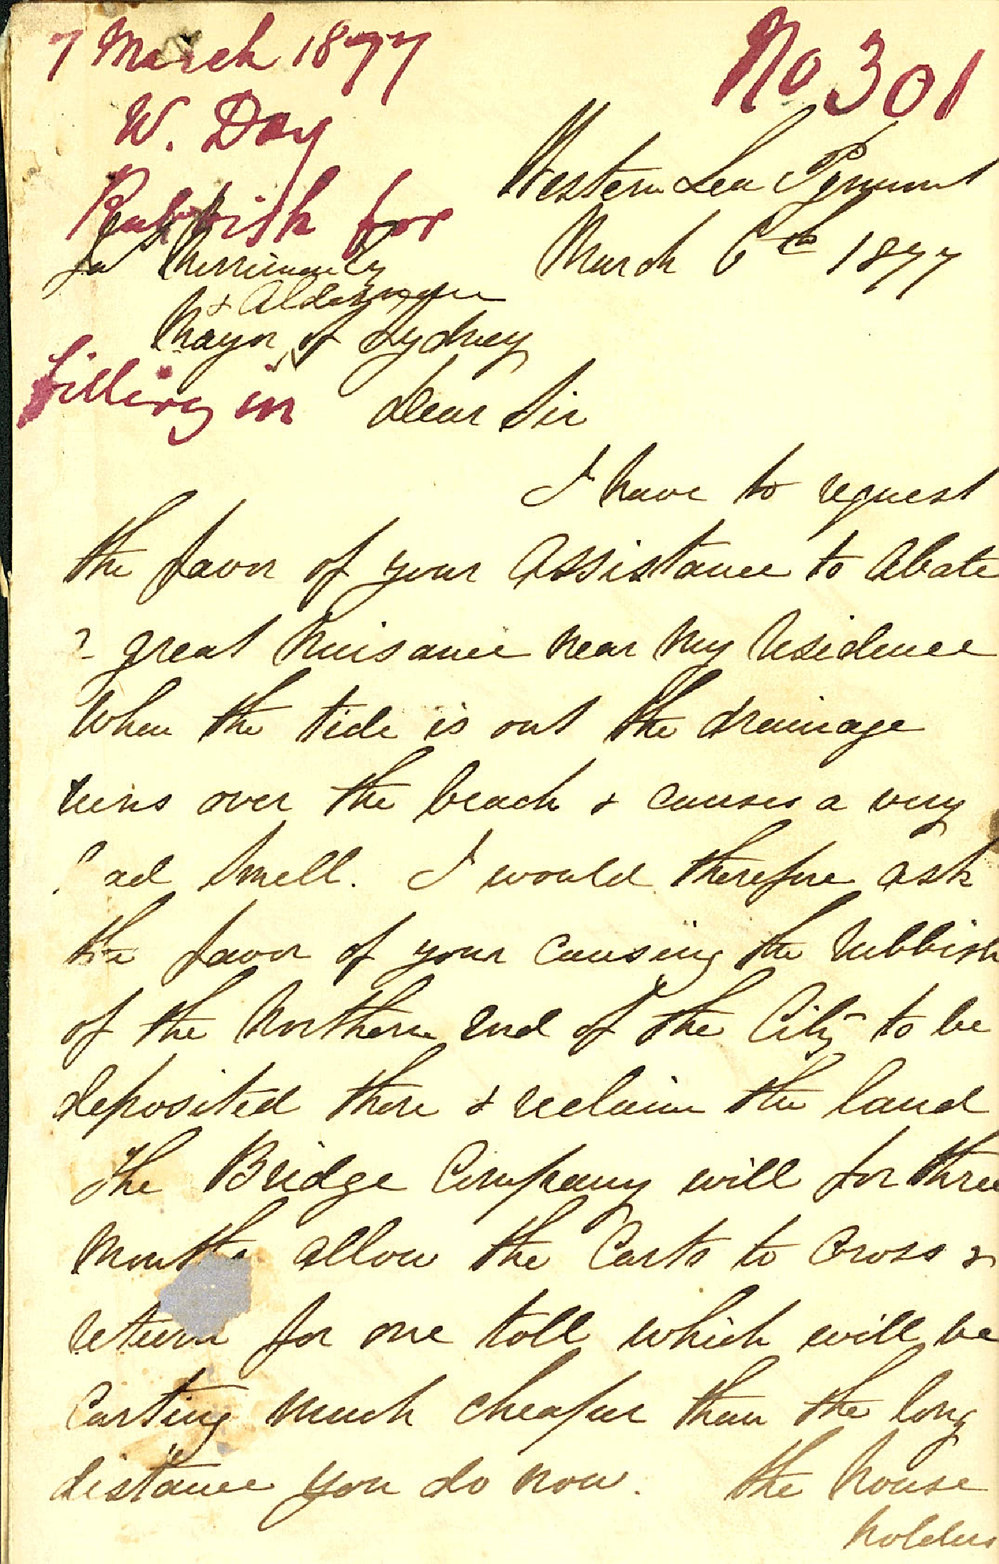 7 March 1877
No 301
W. Day
Rubbish for
filling in
Western Lea Pyrmont
March 6th 1877
Merriman Esq
& Aldermen
Mayor of Sydney
Dear Sir
I have to request
the favor of your Assistance to Abate
a great Nuisance near My Residence
When the tide is out the drainage
runs over the beach & causes a very
bad Smell. I would therefore ask
the favor of your causing the Rubbish
of the Northern End of the City to be
deposited there & reclaim the land
The Bridge Company will for three
Months allow the Carts to Cross &
return for one toll which will be
Carting Much cheaper than the long
distance you do now. the house
holders